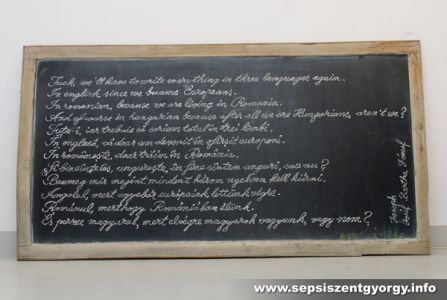 Fuck, we'll have to write everything in three languages again.
In english, since we became Europeans.
In romanian, because we are living in Romania.
And of course in hungarian because after all we are Hungarians, aren't we?
Futu-i, iar trebuie să scriem totul în trei limbi.
În engleză, că doar am devenit în sfîrşit europeni.
În româneşte, doar trăim în România.
Şi bineînţeles, ungureşte, în fine sîntem unguri, sau nu?
Bazmeg már megint mindent három nyelven kell kiírni.
Angolul, mert ugyebár európaiak lettünk végre.
Románul, merthogy Romániában élünk.
És persze magyarul, mert elvégre magyarok vagyunk, vagy nem?
József
www.sepsiszentgyorgy.info